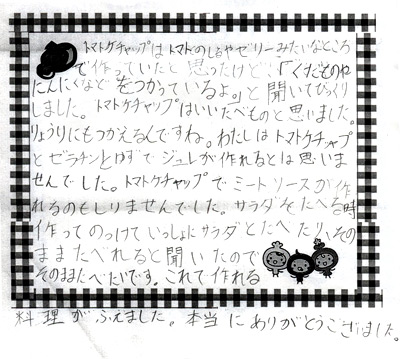 トマトケチャップはトマトのしるやゼリーみたいなところ
で作っていたと思ったけど、「くだものや
にんにくなどをつかっているよ。」と聞いてびっくり
しました。トマトケチャップはいいたべものと思いました。
りょうりにもつかえるんですね。わたしはトマトケチャプ
とゼラチンとゆずでジュレが作れるとは思いま
せんでした。トマトケチャップでミートソースが作
れるのもしりませんでした。サラダをたべる時
作ってのっけていっしょにサラダとたべたり、その
ままたべれると聞いたので
そのままたべたいです。これで作れる
料理がふえました。本当にありがとうございました。